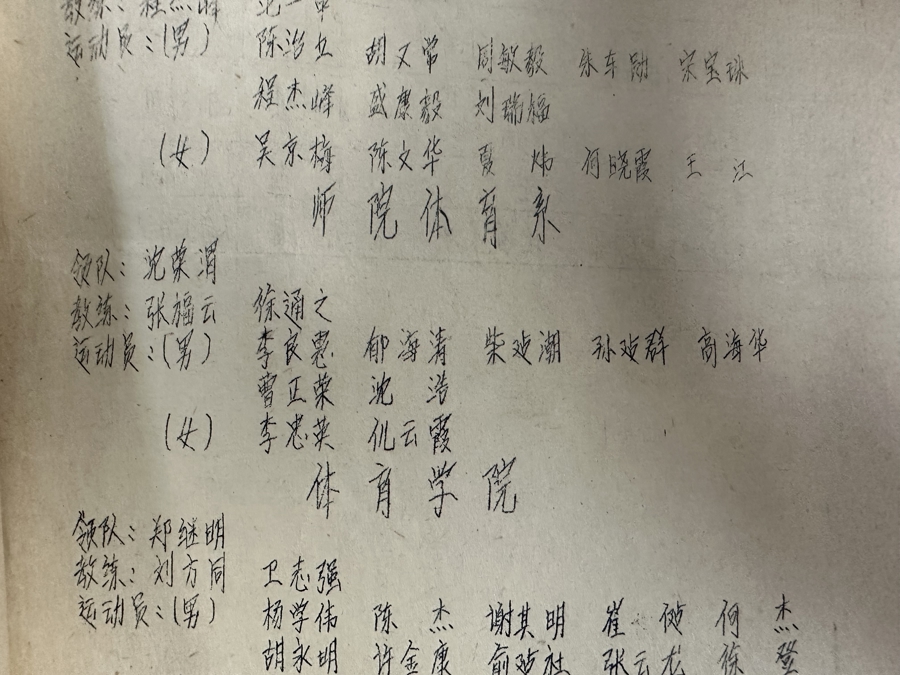 教练：程杰峰
运动员：（男） 陈治立 胡又常 周敏毅 朱车勋 宋宝球
程杰峰 盛康毅 刘瑞福
（女） 吴京梅 陈文华 夏炜 何晓霞 王江
师院体育系
领队：沈荣渭
教练：张福云 徐通之
运动员：（男） 李良惠 郁海清 柴建潮 孙建群 高海华
曹正荣 沈浩
（女） 李忠英 仇云霞
体育学院
领队：郑继明
教练：刘方同 卫志强
运动员：（男） 杨学伟 陈杰 谢其明 崔 何杰
胡永明 许金康 俞建社 张云龙 徐登